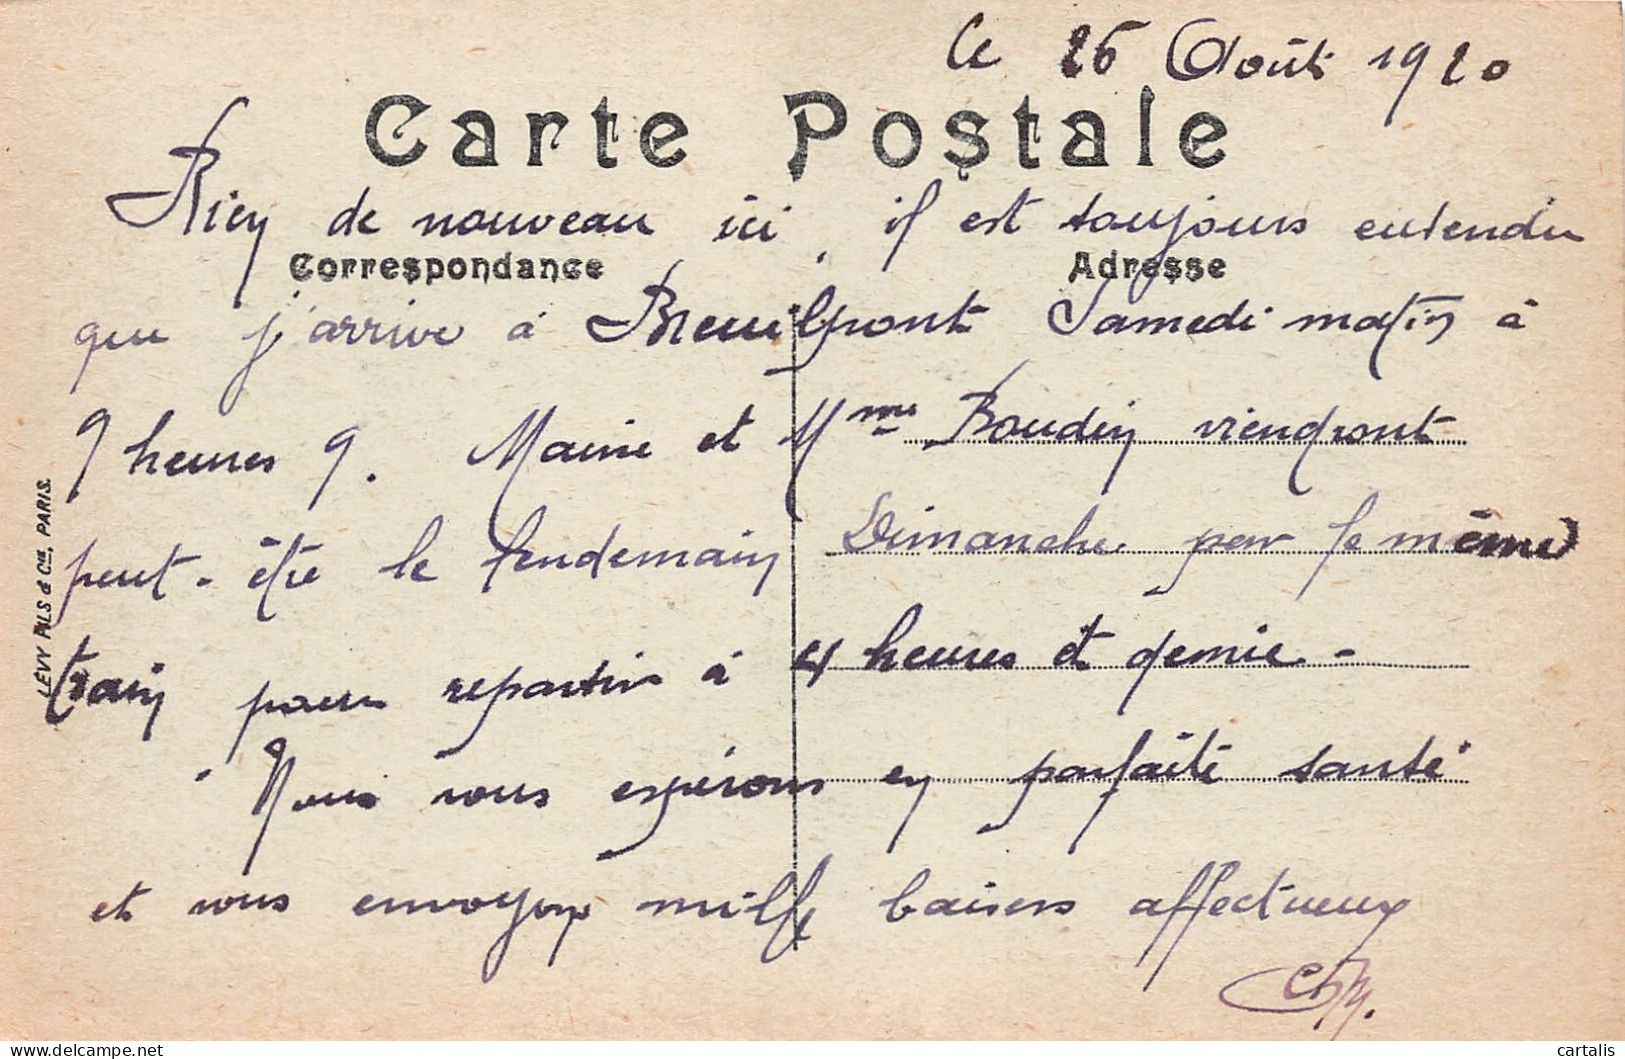 Le 26 Août 1920
Carte Postale
Rien de nouveau ici, il est toujours entendu
Correspondance Adresse
que j'arrive à Breuilpont Samedi matin à
9 heures 9. Mairie et Mme Boudin viendront
peut-être le lendemain Dimanche par le même
train pour repartir à 4 heures et demie -
Nous vous espérons en parfaite santé
et vous envoyons mille baisers affectueux
LEVY FILS & Cie, PARIS.
cartalis